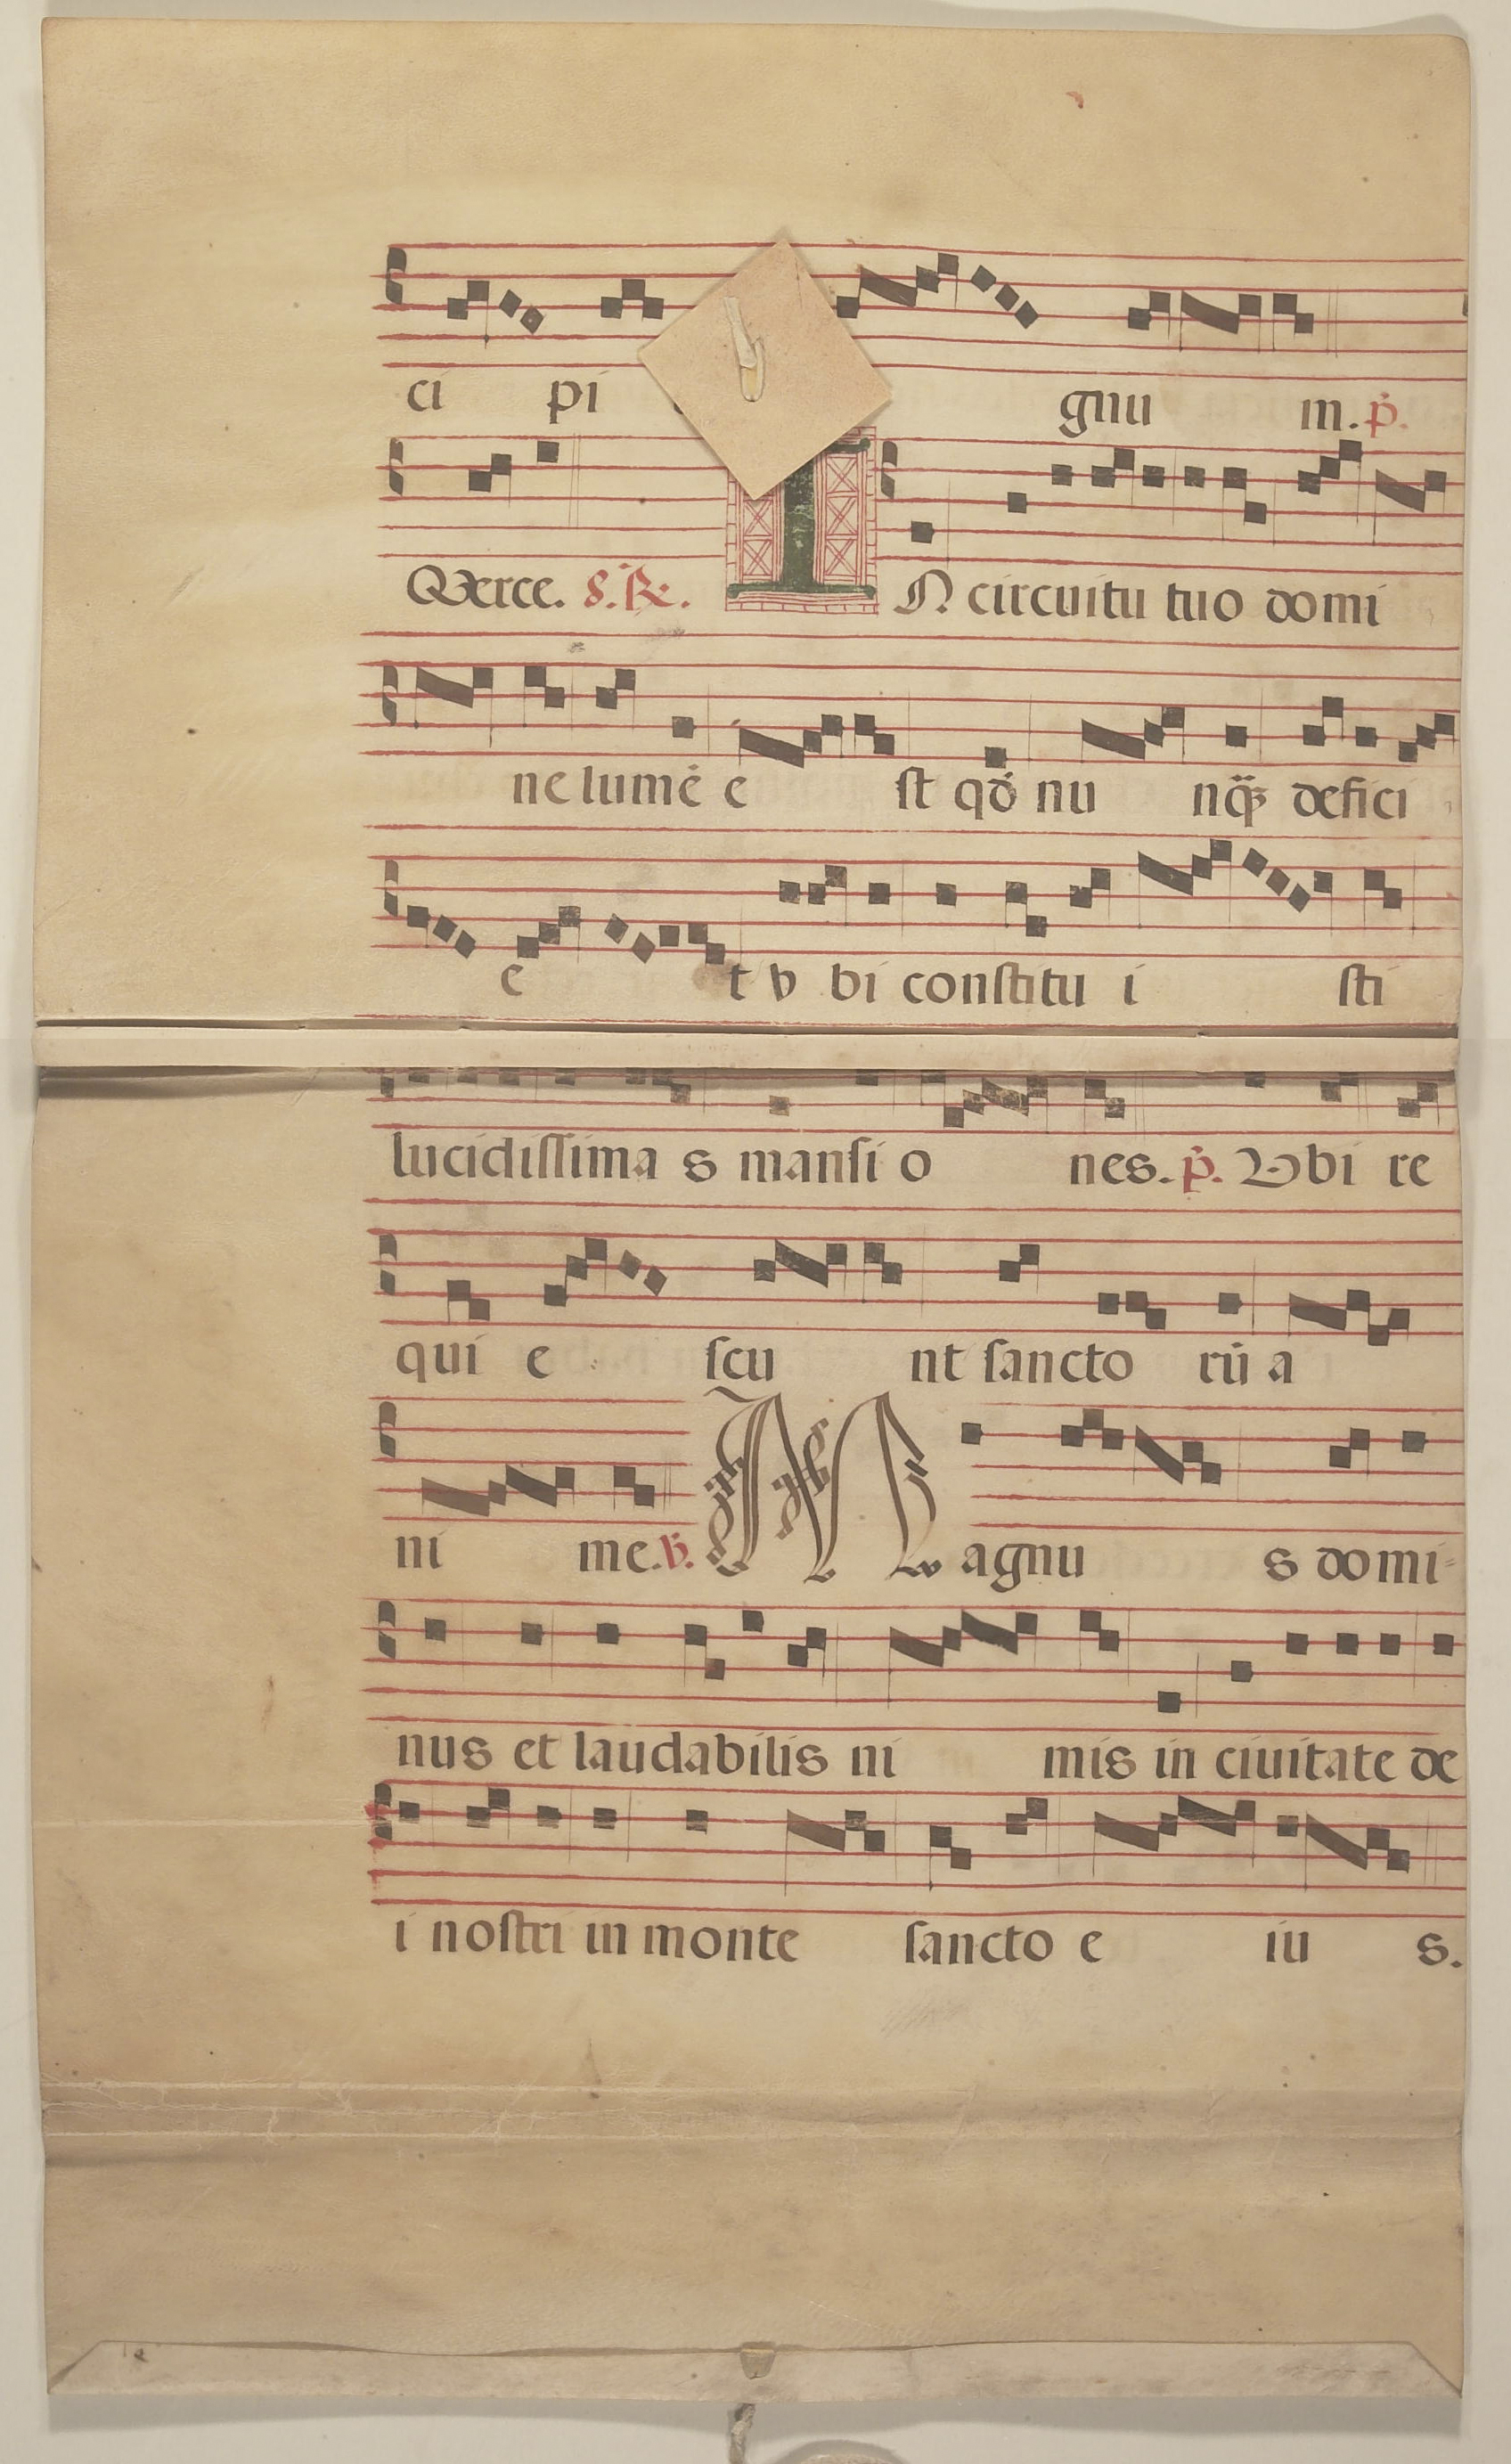 ci pi gnu m. p̄.
Qverce. 8. R̄.
IN circuitu tuo domi
ne lumē e st qđ nu nq̃ȝ defici
e t v bi constitu i sti
lucidissima s mansi o nes. p̄. Vbi re
qui e scu nt sancto rū a
ni me. v̄. Magnu s domi-
nus et laudabilis ni mis in ciuitate de
i nostri in monte sancto e iu s.